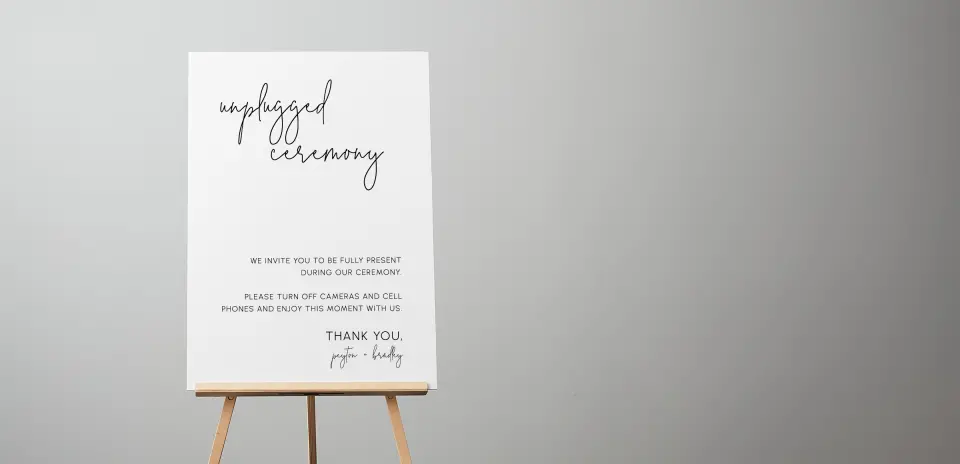 unplugged
ceremony
WE INVITE YOU TO BE FULLY PRESENT
DURING OUR CEREMONY.
PLEASE TURN OFF CAMERAS AND CELL
PHONES AND ENJOY THIS MOMENT WITH US.
THANK YOU,
payton + bradley